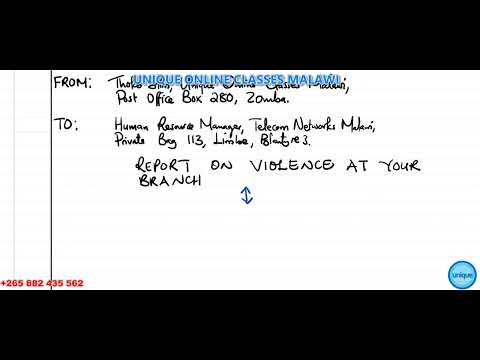 UNIQUE ONLINE CLASSES MALAWI
FROM: Unique Online Classes Malawi,
Post Office Box 280, Zomba.
TO: Human Resource Manager, Telecom Networks Malawi,
Private Bag 113, Limbe, Blantyre 3.
REPORT ON VIOLENCE AT YOUR
BRANCH
unique
+265 882 435 562